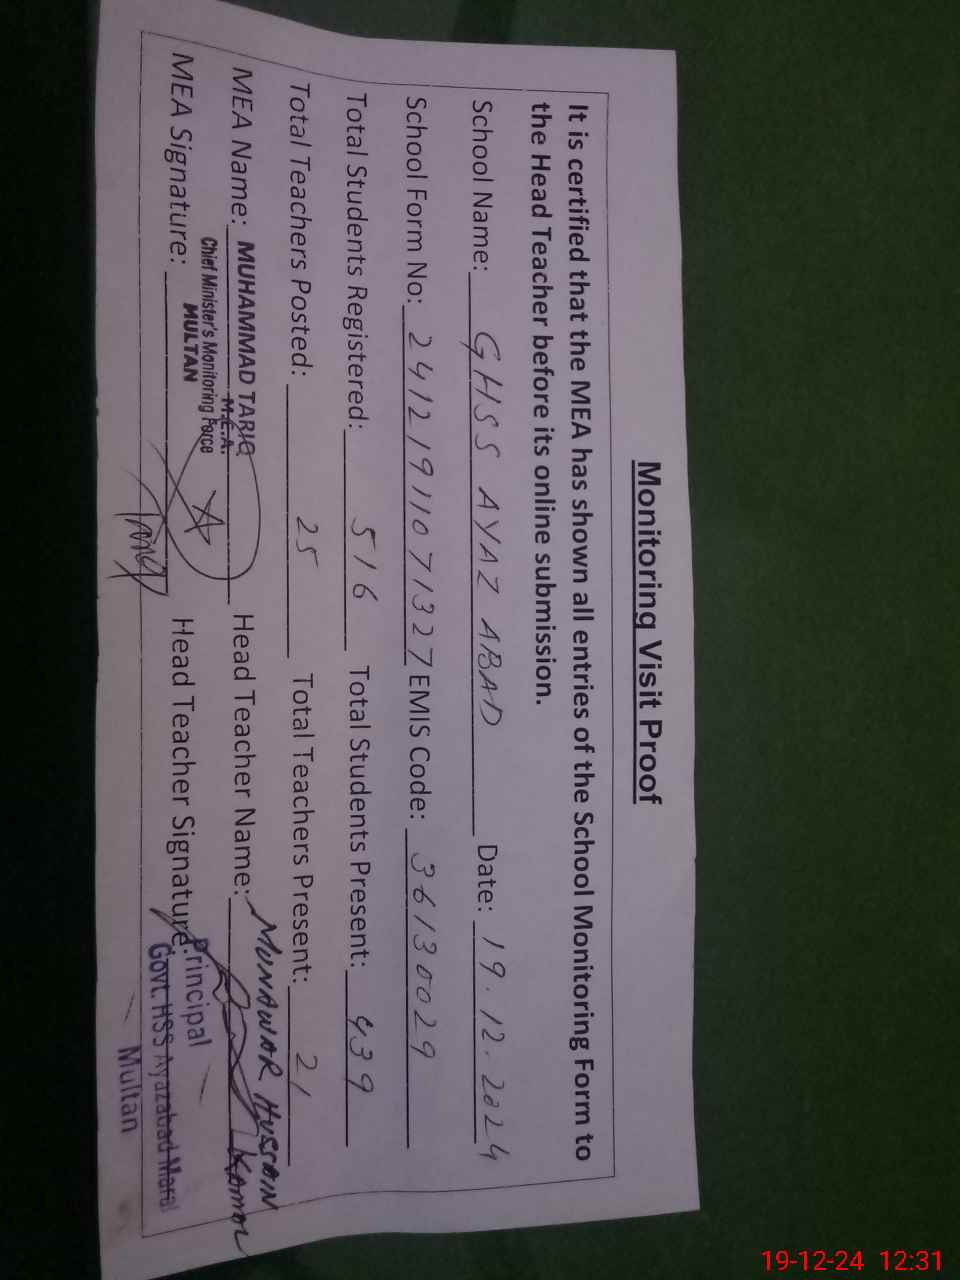 Monitoring Visit Proof
It is certified that the MEA has shown all entries of the School Monitoring Form to
the Head Teacher before its online submission.
School Name: GHSS AYAZ ABAD Date: 19.12.2024
School Form No: 24121911071327 EMIS Code: 36130029
Total Students Registered: 516 Total Students Present: 439
Total Teachers Posted: 25 Total Teachers Present: 21
MEA Name: MUHAMMAD TARIQ Head Teacher Name: MUNAWAR HUSSAIN
M.E.A.
Chief Minister's Monitoring Force
MULTAN
MEA Signature: Head Teacher Signature:
Principal
Govt. HSS Ayazabad Maral
Multan
19-12-24 12:31